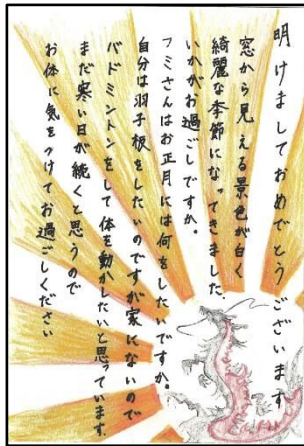 明けましておめでとうございます
窓から見える景色が白く
綺麗な季節になってきました。
いかがお過ごしですか。
フミさんはお正月には何をしたいですか。
自分は羽子板をしたいのですが家にないので
バドミントンをして体を動かしたいと思っています。
まだ寒い日が続くと思うので
お体に気をつけてお過ごしください